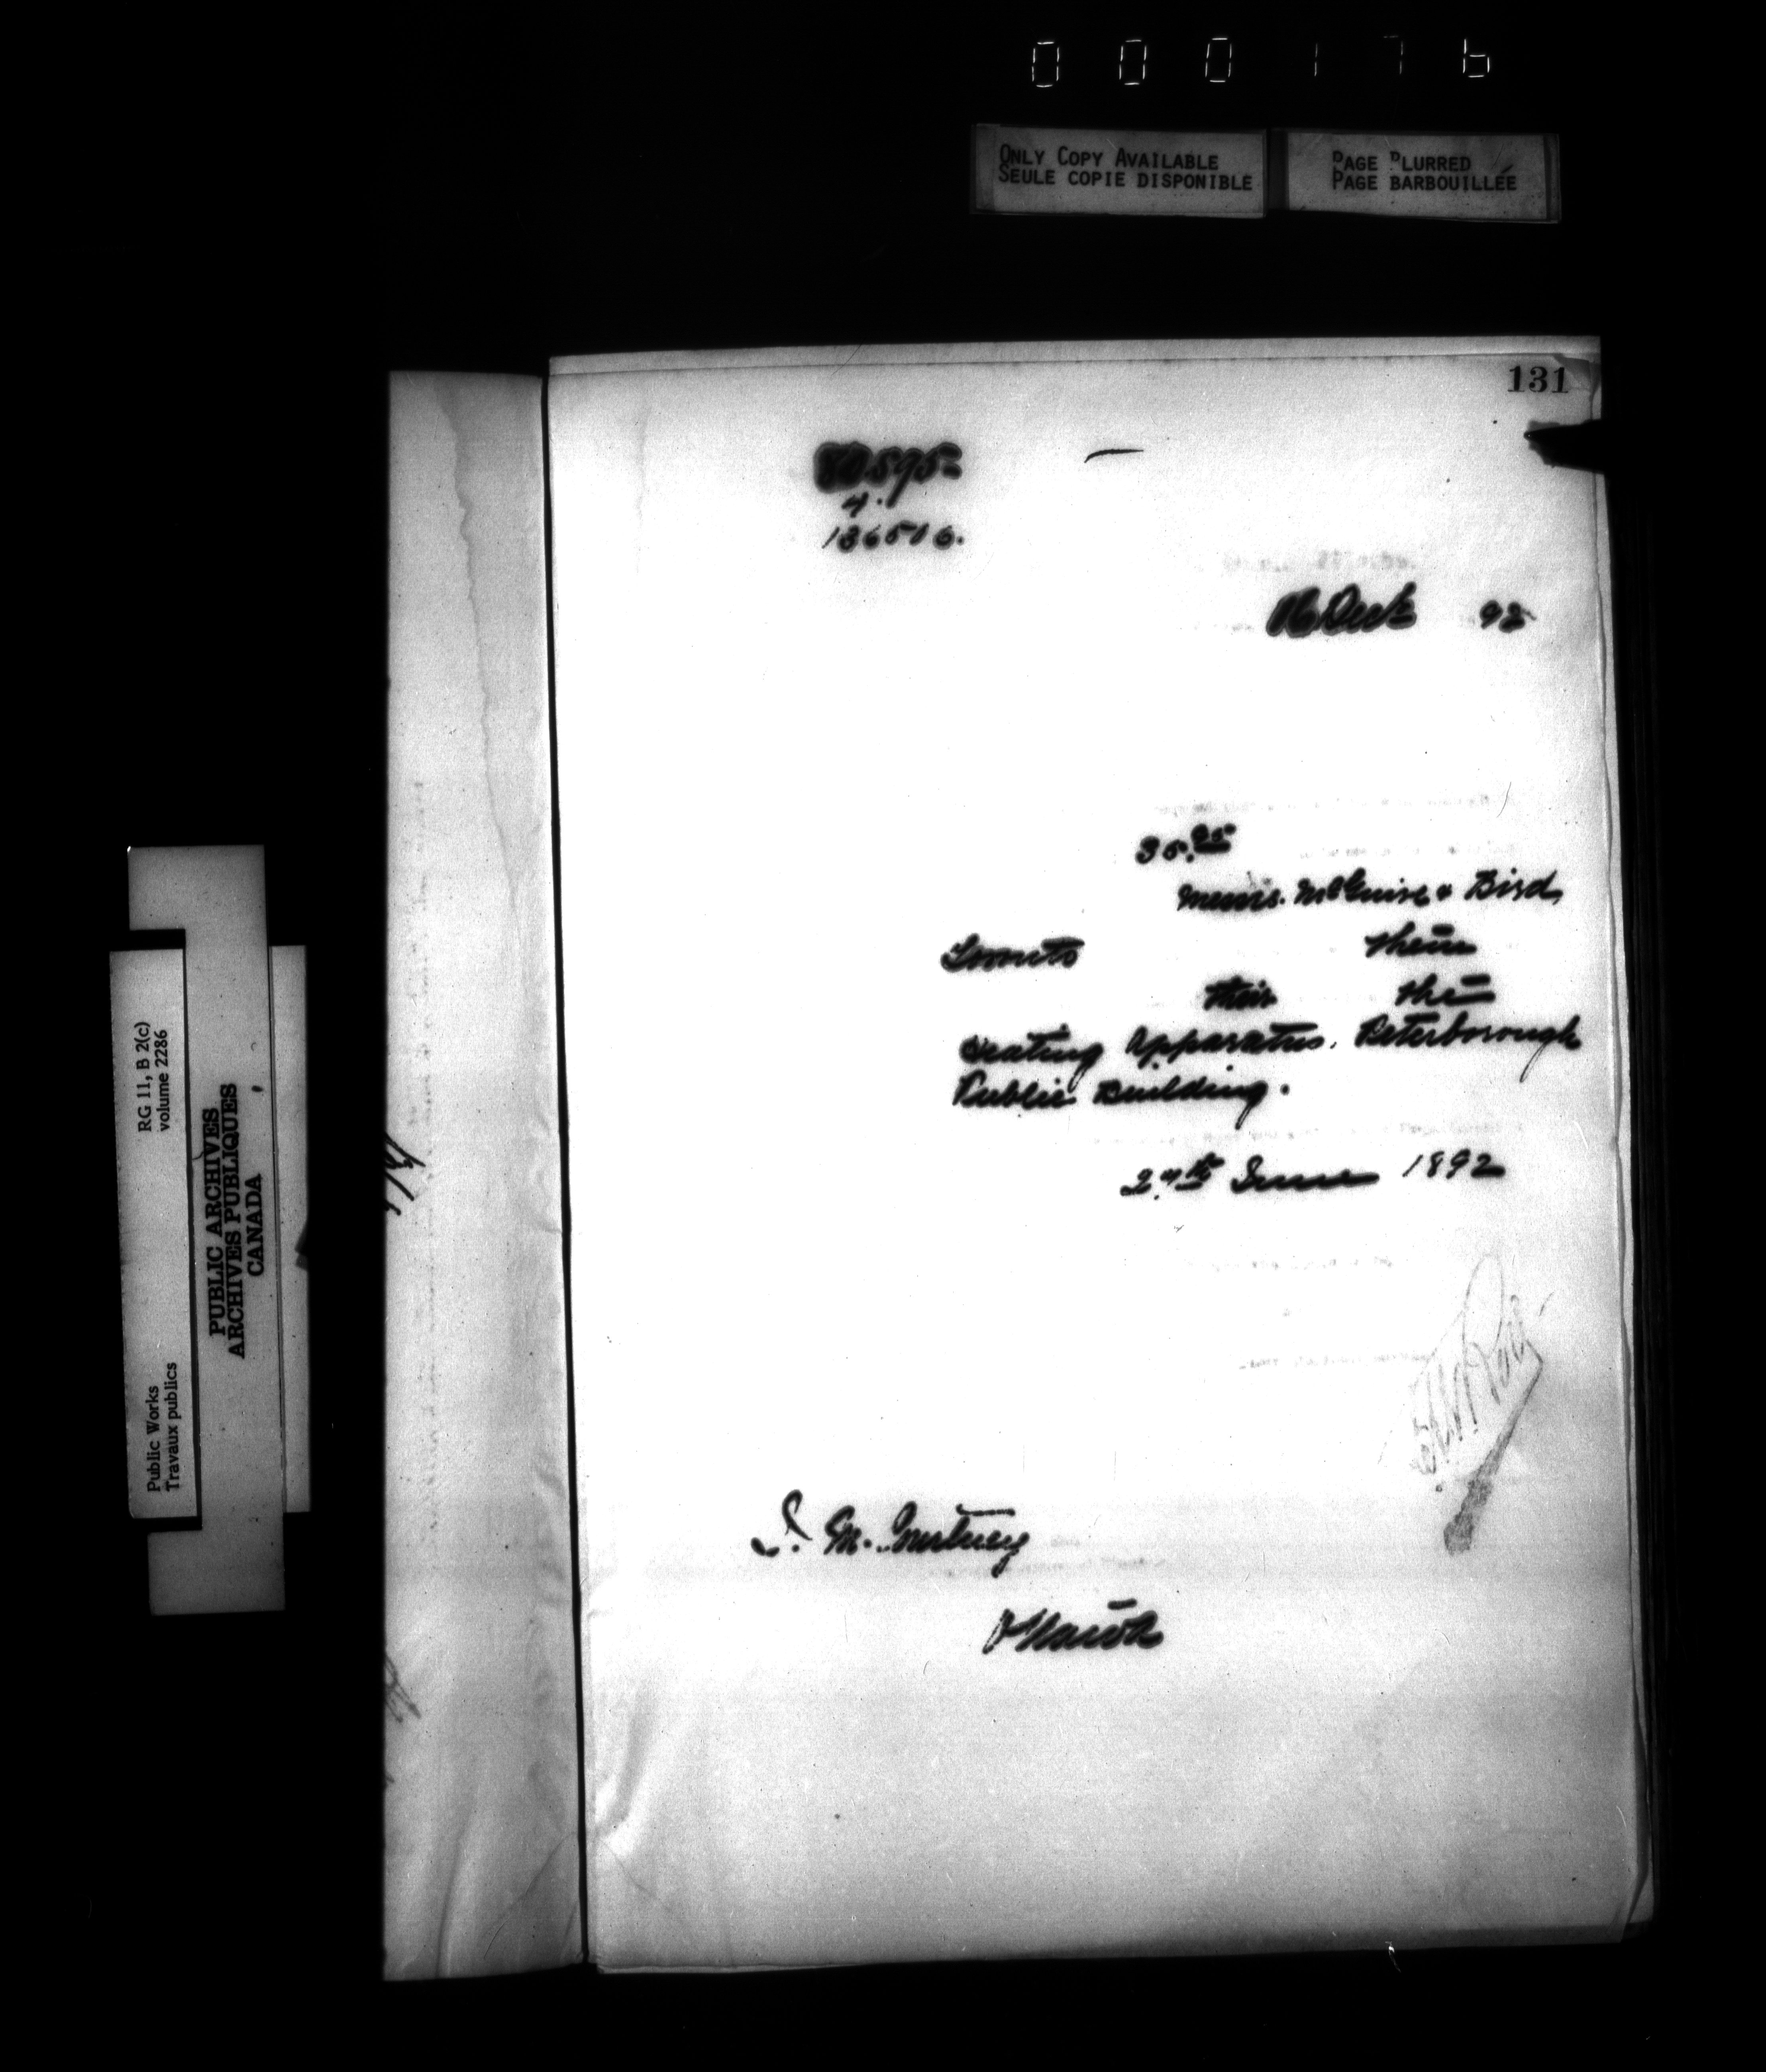 000176
ONLY COPY AVAILABLE
SEULE COPIE DISPONIBLE
PAGE BLURRED
PAGE BARBOUILLÉE
131
4.
136516.
16 Dect 92
35.95
Messrs. McGuire & Bird,
Toronto them
their the
Heating Apparatus. Peterborough
Public Building.
27th June 1892
J. M. Courtney
Ottawa
RG 11, B 2(c)
volume 2286
PUBLIC ARCHIVES
ARCHIVES PUBLIQUES
CANADA
Public Works
Travaux publics